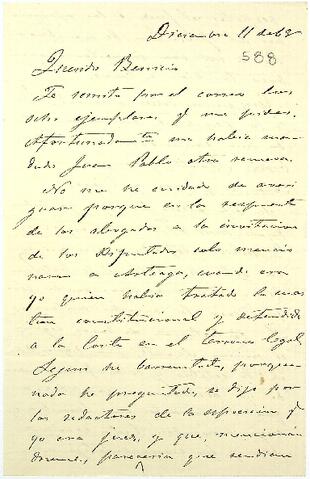 Diciembre 11 de 68
588
Querido Benicio
Te remito por el correo los
ocho ejemplares q me pides.
Afortunadamte me habia man-
dado Juan Pablo otra remesa.
No me he cuidado de averi
guar porque en la respuesta
de los abogados a la invitacion
de los Diputados solo mencio
naron a Arteaga, cuando era
yo quien habia tratado la cues
tion constitucional y defendido
a la Corte en el terreno legal.
Segun he barruntado, porque
nada he preguntado, se dijo por
los redactores de la esposicion q
yo era juez, ya que, mencionán
dome, pareceria que rendian